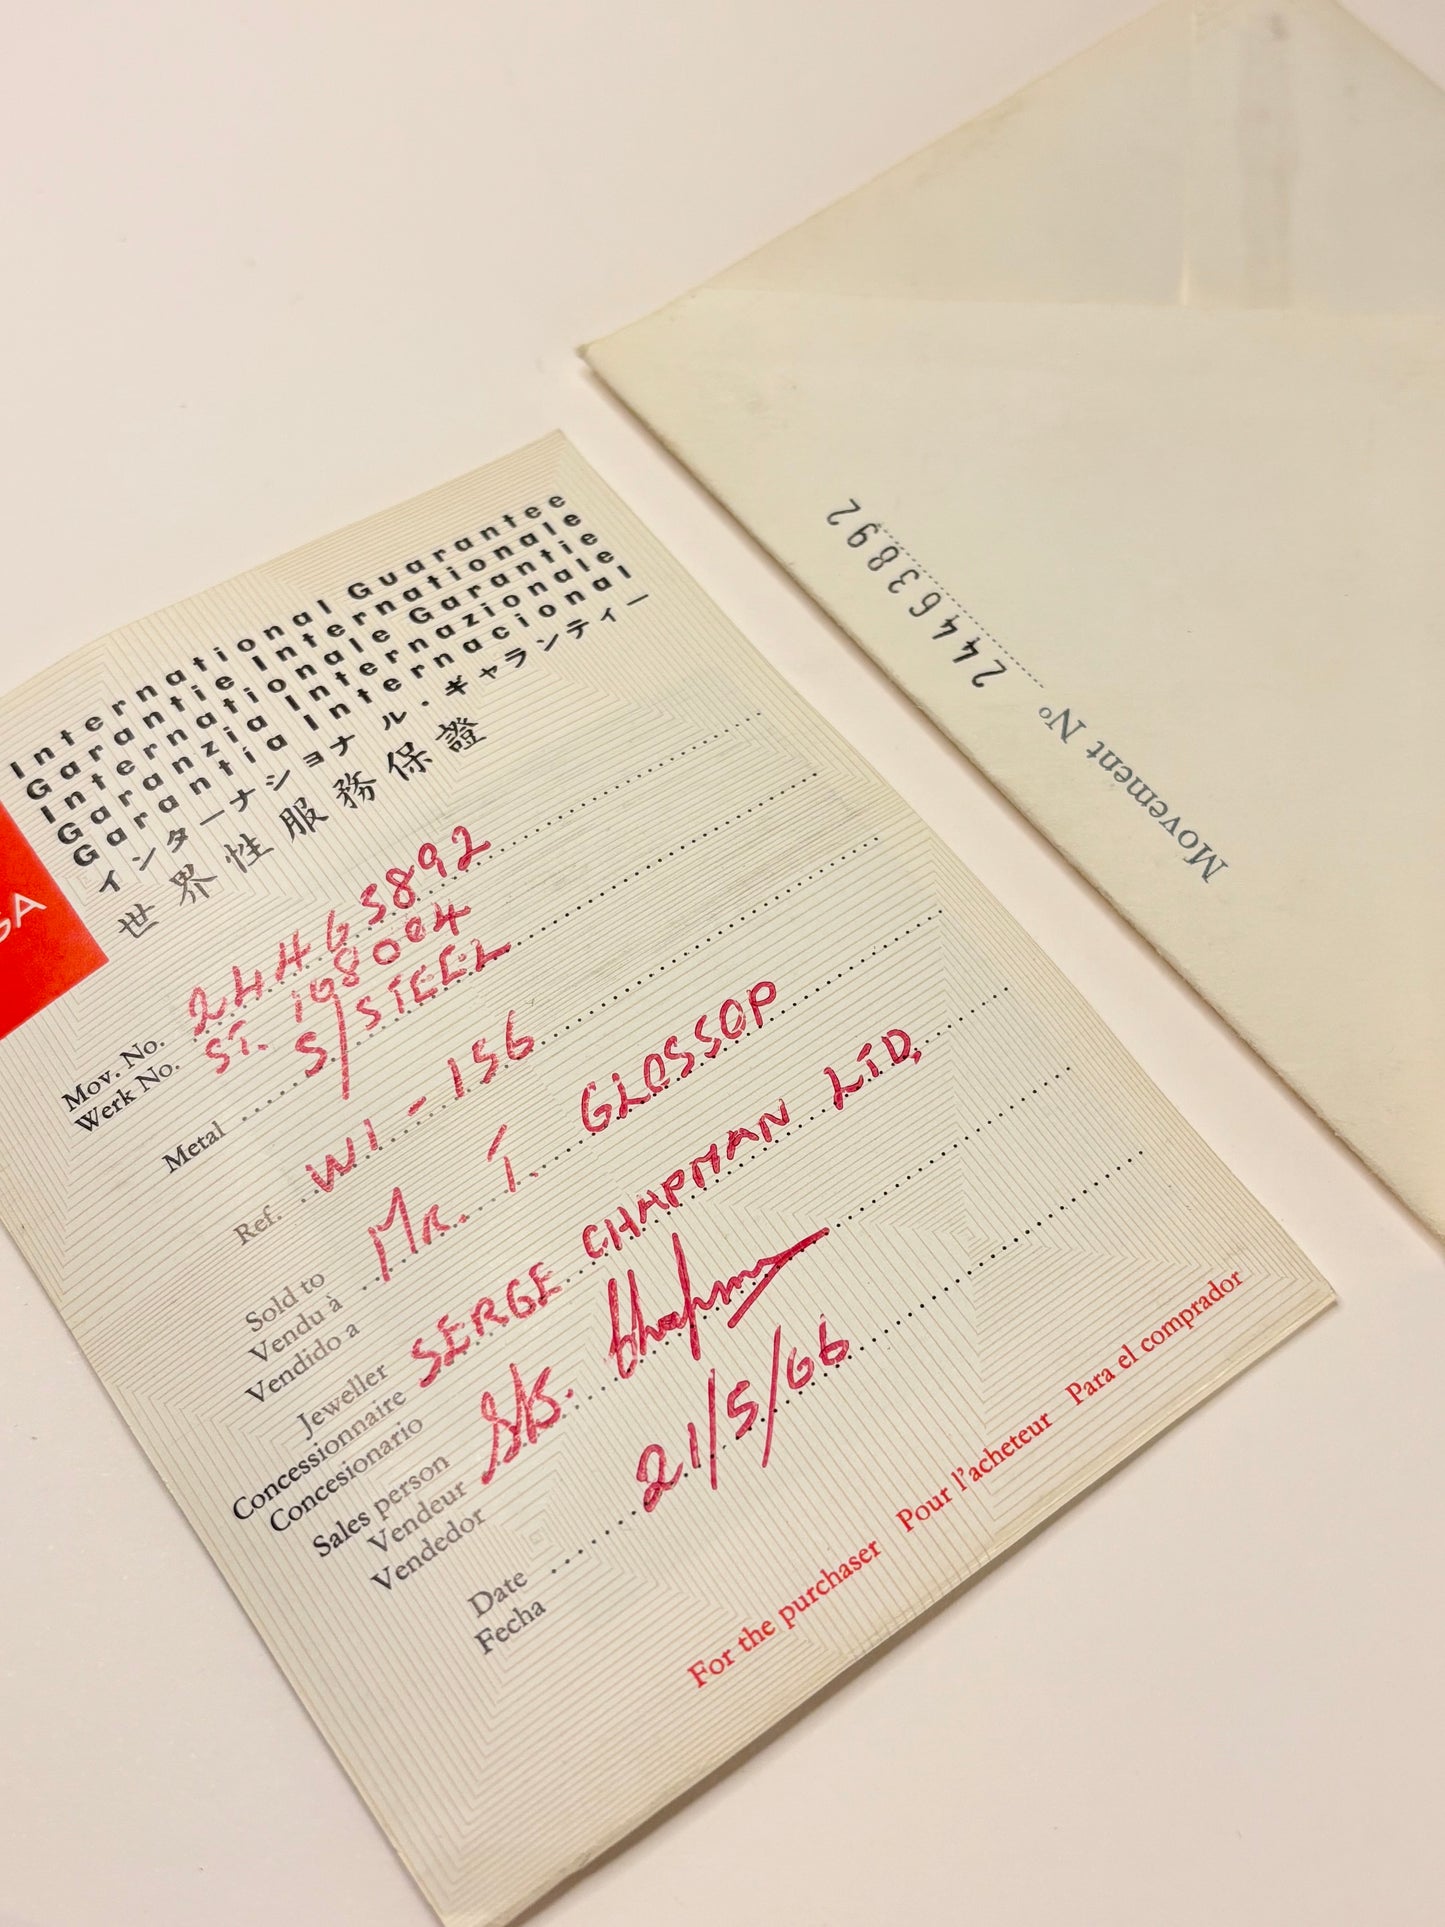 International Guarantee
Garantie Internationale
Internationale Garantie
Garanzia Internazionale
Garantia Internacional
インターナショナル・ギャランティー
世界性服務保證
GA
Mov. No. 24463892
Werk No. ST. 108004
Metal S/STEEL
Ref. W1-156
Sold to
Vendu à MR. T. GLOSSOP
Vendido a
Jeweller
Concessionnaire SERGE CHAPMAN LTD,
Concesionario
Sales person
Vendeur
Vendedor
Date 21/5/66
Fecha
For the purchaser Pour l'acheteur Para el comprador
Movement Nº 24463892